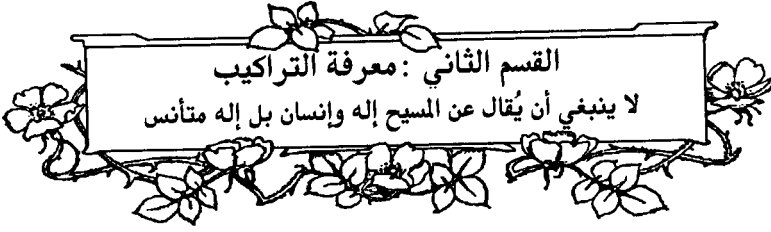 القسم الثاني : معرفة التراكيب
لا ينبغي أن يُقال عن المسيح إله وإنسان بل إله متأنس